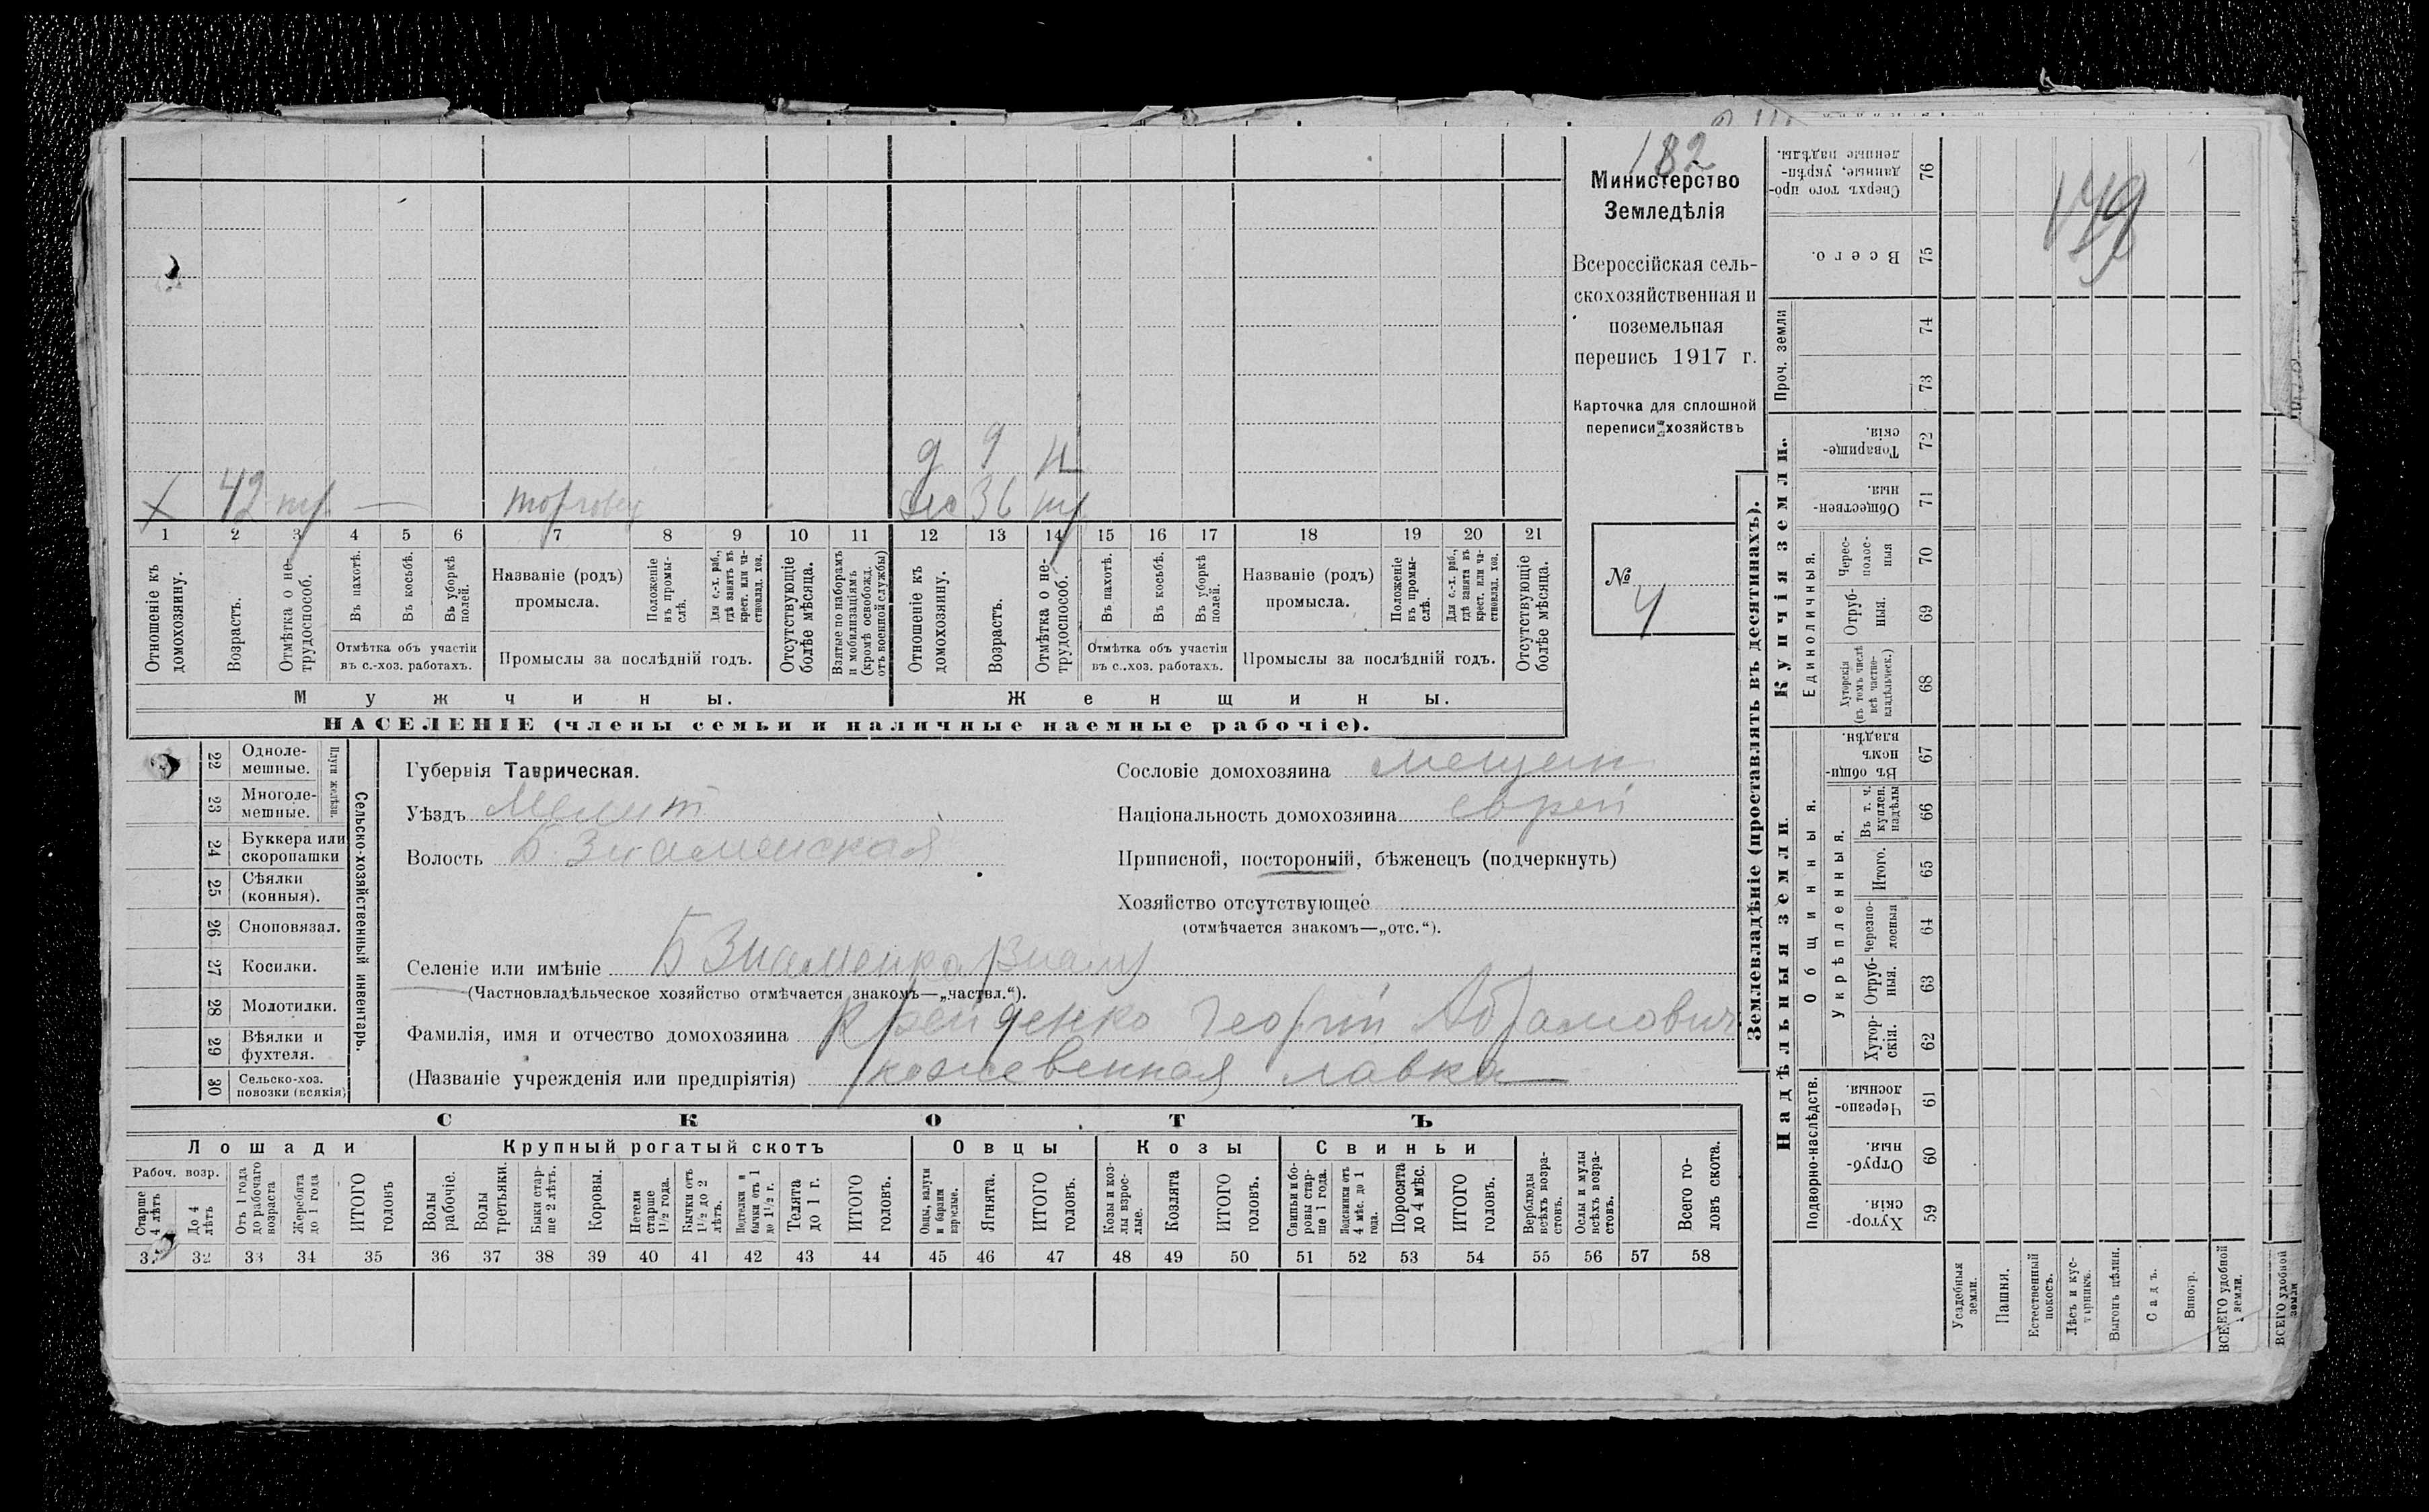 182
Министерство
Земледѣлія
Всероссійская сель-
скохозяйственная и
поземельная
перепись 1917 г.
Карточка для сплошной
переписи хозяйствъ
№
4
179
д 9 н
х 42 тр. — торговец
жена 36 тр
1 2 3 4 5 6 7 8 9 10 11 12 13 14 15 16 17 18 19 20 21
Отношеніе къ домохозяину.
Возрастъ.
Отмѣтка о не-трудоспособ.
Въ пахотѣ.
Въ косьбѣ.
Въ уборкѣ полей.
Отмѣтка объ участіи
въ с.-хоз. работахъ.
Названіе (родъ)
промысла.
Положеніе въ промы-слѣ.
Для с.-х. раб., гдѣ занятъ въ крест. или ча-стновлад. хоз.
Промыслы за послѣдній годъ.
Отсутствующіе болѣе мѣсяца.
Взятые по наборамъ и мобилизаціямъ (кромѣ освобожд. отъ военной службы)
Отношеніе къ домохозяину.
Возрастъ.
Отмѣтка о не-трудоспособ.
Въ пахотѣ.
Въ косьбѣ.
Въ уборкѣ полей.
Отмѣтка объ участіи
въ с.-хоз. работахъ.
Названіе (родъ)
промысла.
Положеніе въ промы-слѣ.
Для с.-х. раб., гдѣ занята въ крест. или ча-стновлад. хоз.
Промыслы за послѣдній годъ.
Отсутствующіе болѣе мѣсяца.
Мужчины.
Женщины.
НАСЕЛЕНІЕ (члены семьи и наличные наемные рабочіе).
22 Одноле-мешные.
23 Многоле-мешные.
Плуги желѣзн.
24 Буккера или скоропашки
25 Сѣялки (конныя).
26 Сноповязал.
27 Косилки.
28 Молотилки.
29 Вѣялки и фухтеля.
30 Сельско-хоз. повозки (всякія)
Сельско-хозяйственный инвентарь.
Губернія Таврическая.
Уѣздъ Мелит
Волость Б. Знаменская
Селеніе или имѣніе Б Знаменка
(Частновладѣльческое хозяйство отмѣчается знакомъ—„частвл.“).
Фамилія, имя и отчество домохозяина Крейденко Георгій Абрамович
(Названіе учрежденія или предпріятія) кожевенная лавка
Сословіе домохозяина мещан
Національность домохозяина еврей
Приписной, посторонній, бѣженецъ (подчеркнуть)
Хозяйство отсутствующее
(отмѣчается знакомъ—„отс.“).
СКОТЪ
Лошади
Крупный рогатый скотъ
Овцы
Козы
Свиньи
Рабоч. возр.
Старше 4 лѣтъ
До 4 лѣтъ
Отъ 1 года до рабочаго возраста
Жеребята до 1 года
ИТОГО головъ
Волы рабочіе.
Волы третьяки.
Быки стар-ше 2 лѣтъ.
Коровы.
Нетели старше 1½ года.
Бычки отъ 1½ до 2 лѣтъ.
Подтелки и бычки отъ 1 до 1½ г.
Телята до 1 г.
ИТОГО головъ.
Овцы, валухи и бараны взрослые.
Ягнята.
ИТОГО головъ.
Козы и коз-лы взрос-лые.
Козлята
ИТОГО головъ.
Свиньи и бо-ровы стар-ше 1 года.
Подсвинки отъ 4 мѣс. до 1 года.
Поросята до 4 мѣс.
ИТОГО головъ.
Верблюды всѣхъ возра-стовъ.
Ослы и мулы всѣхъ возра-стовъ.
Всего го-ловъ скота.
32 33 34 35 36 37 38 39 40 41 42 43 44 45 46 47 48 49 50 51 52 53 54 55 56 57 58
Землевладѣніе (проставлять въ десятинахъ).
Купчія земли.
Надѣльныя земли
Сверхъ того про-данные, укрѣп-ленные надѣлы. 76
Всего. 75
Проч. земли
74
73
Товарище-скія. 72
Обществен-ныя. 71
Единоличныя.
Черес-полос-ныя 70
Отруб-ныя. 69
Хуторскія (въ томъ числѣ всѣ частно-владѣльческ.) 68
Общинныя.
Въ общи-номъ владѣн. 67
Укрѣпленныя.
Въ т. ч. куплен. надѣлы 66
Итого. 65
Черезпо-лосныя 64
Отруб-ныя. 63
Хутор-скія. 62
Подворно-наслѣдств.
Черезпо-лосныя. 61
Отруб-ныя. 60
Хутор-скія. 59
Усадебныя земли.
Пашня.
Естественный покосъ.
Лѣсъ и кус-тарникъ.
Выгонъ цѣлин.
Садъ.
Виногр.
ВСЕГО удобной земли.
ВСЕГО удобной земли